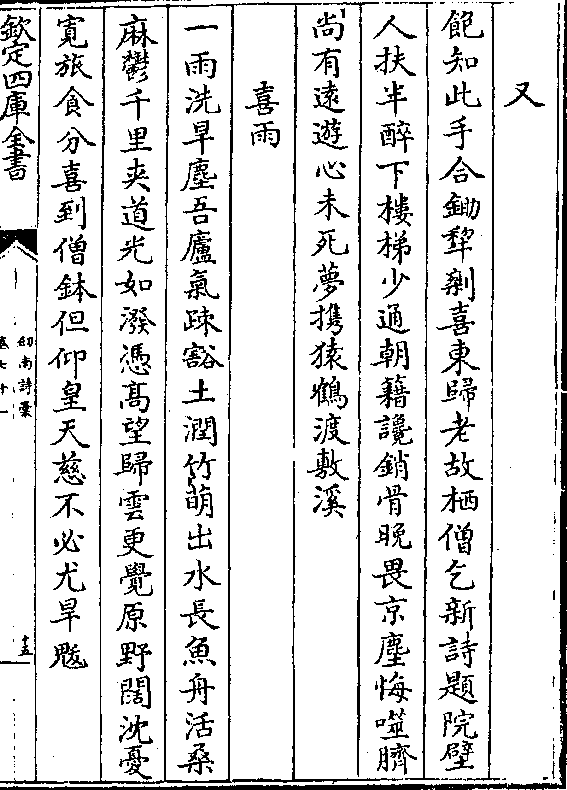 又
飽知此手合鋤犂剰喜東歸老故栖僧乞新詩題院壁
人扶半醉下樓梯少通朝籍讒銷骨晚畏京塵悔噬臍
尚有遠遊心未死夢攜猿鶴渡敷溪
喜雨
一雨洗旱塵吾廬氣疎豁土潤竹萌出水長魚舟活桑
麻鬱千里夾道光如潑憑髙望歸雲更覺原野闊沈憂
寛旅食分喜到僧鉢但仰皇天慈不必尤旱魃
欽定四庫全書
劒南詩稾
卷七十一